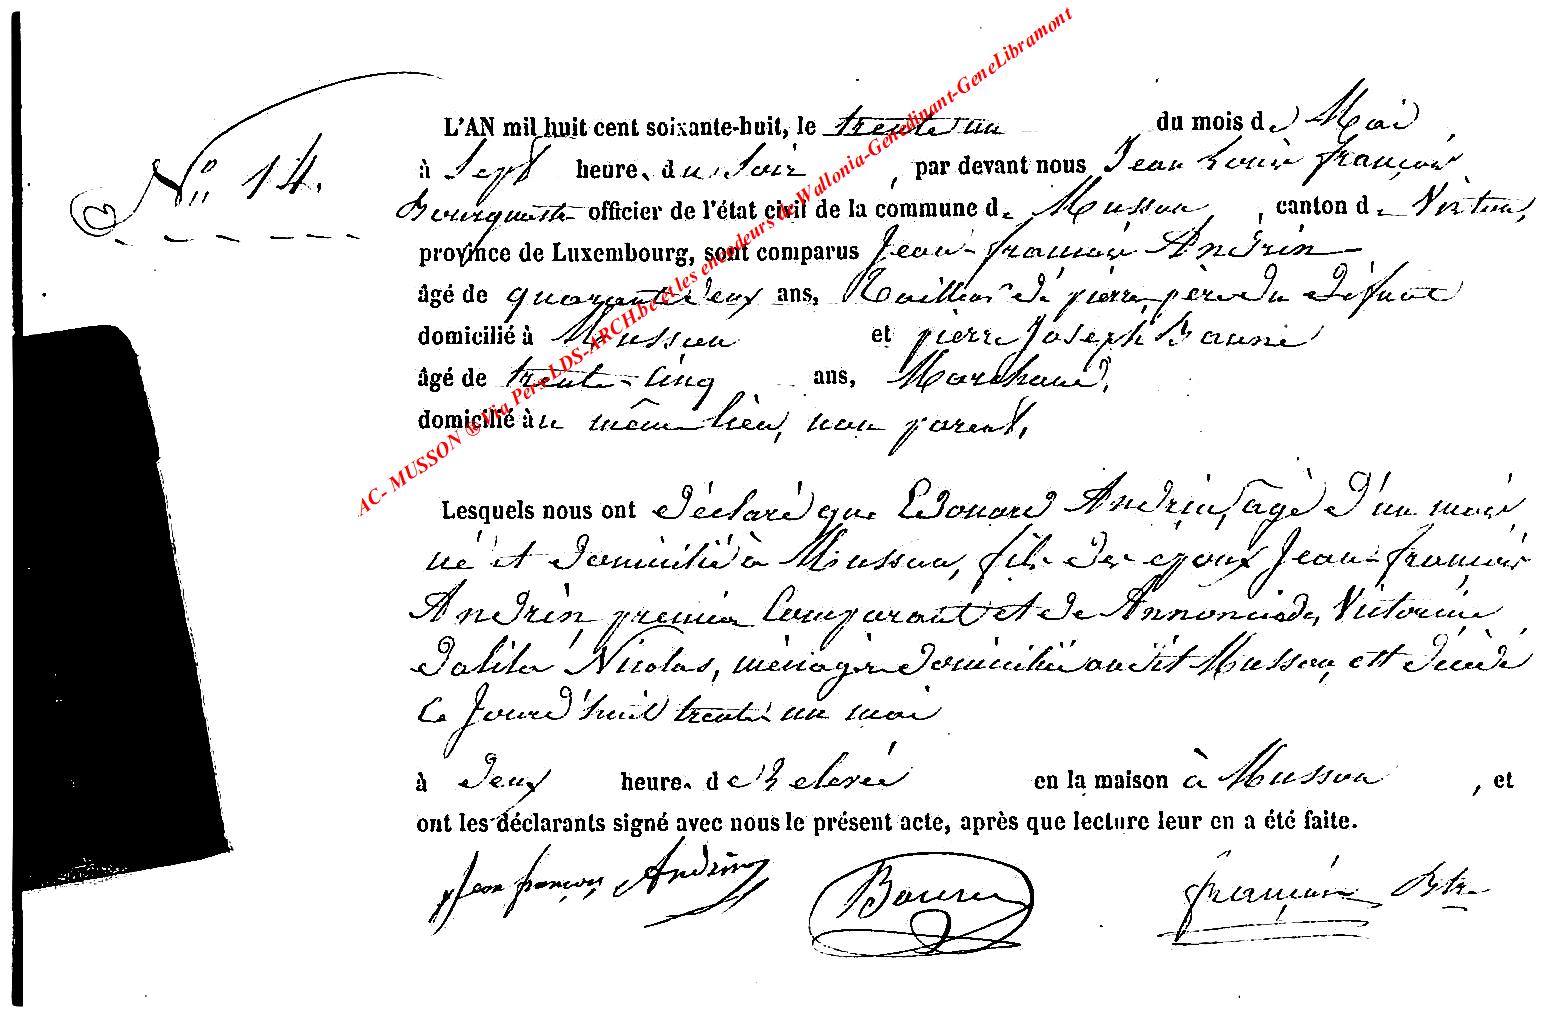 N° 14.
L'AN mil huit cent soixante-huit, le trente un du mois de Mai
à Sept heure. du Soir, par devant nous Jean Louis françois
officier de l'état civil de la commune de Musson, canton de Virton,
province de Luxembourg, sont comparus Jean-françois Andrin
âgé de quarante deux ans, Tailleur de pierre, père du défunt
domicilié à Musson et pierre Joseph
âgé de trente-cinq ans, Marchand,
domicilié au même lieu, non parent,
Lesquels nous ont déclaré que Edouard Andrin, âgé d'un mois
né et domicilié à Musson, fils des époux Jean-françois
Andrin, premier Comparant et de Annonciade, Victorine
Dalila Nicolas, ménagère domiciliée audit Musson, est décédé
Ce Jourd'huit trente un mai
à deux heure. de Relevée en la maison à Musson, et
ont les déclarants signé avec nous le présent acte, après que lecture leur en a été faite.
Jean françois Andrin françois
AC- MUSSON ® Via Pers-LDS-ARCH.be et les encodeurs de Wallonia-Genedinant-GeneLibramont